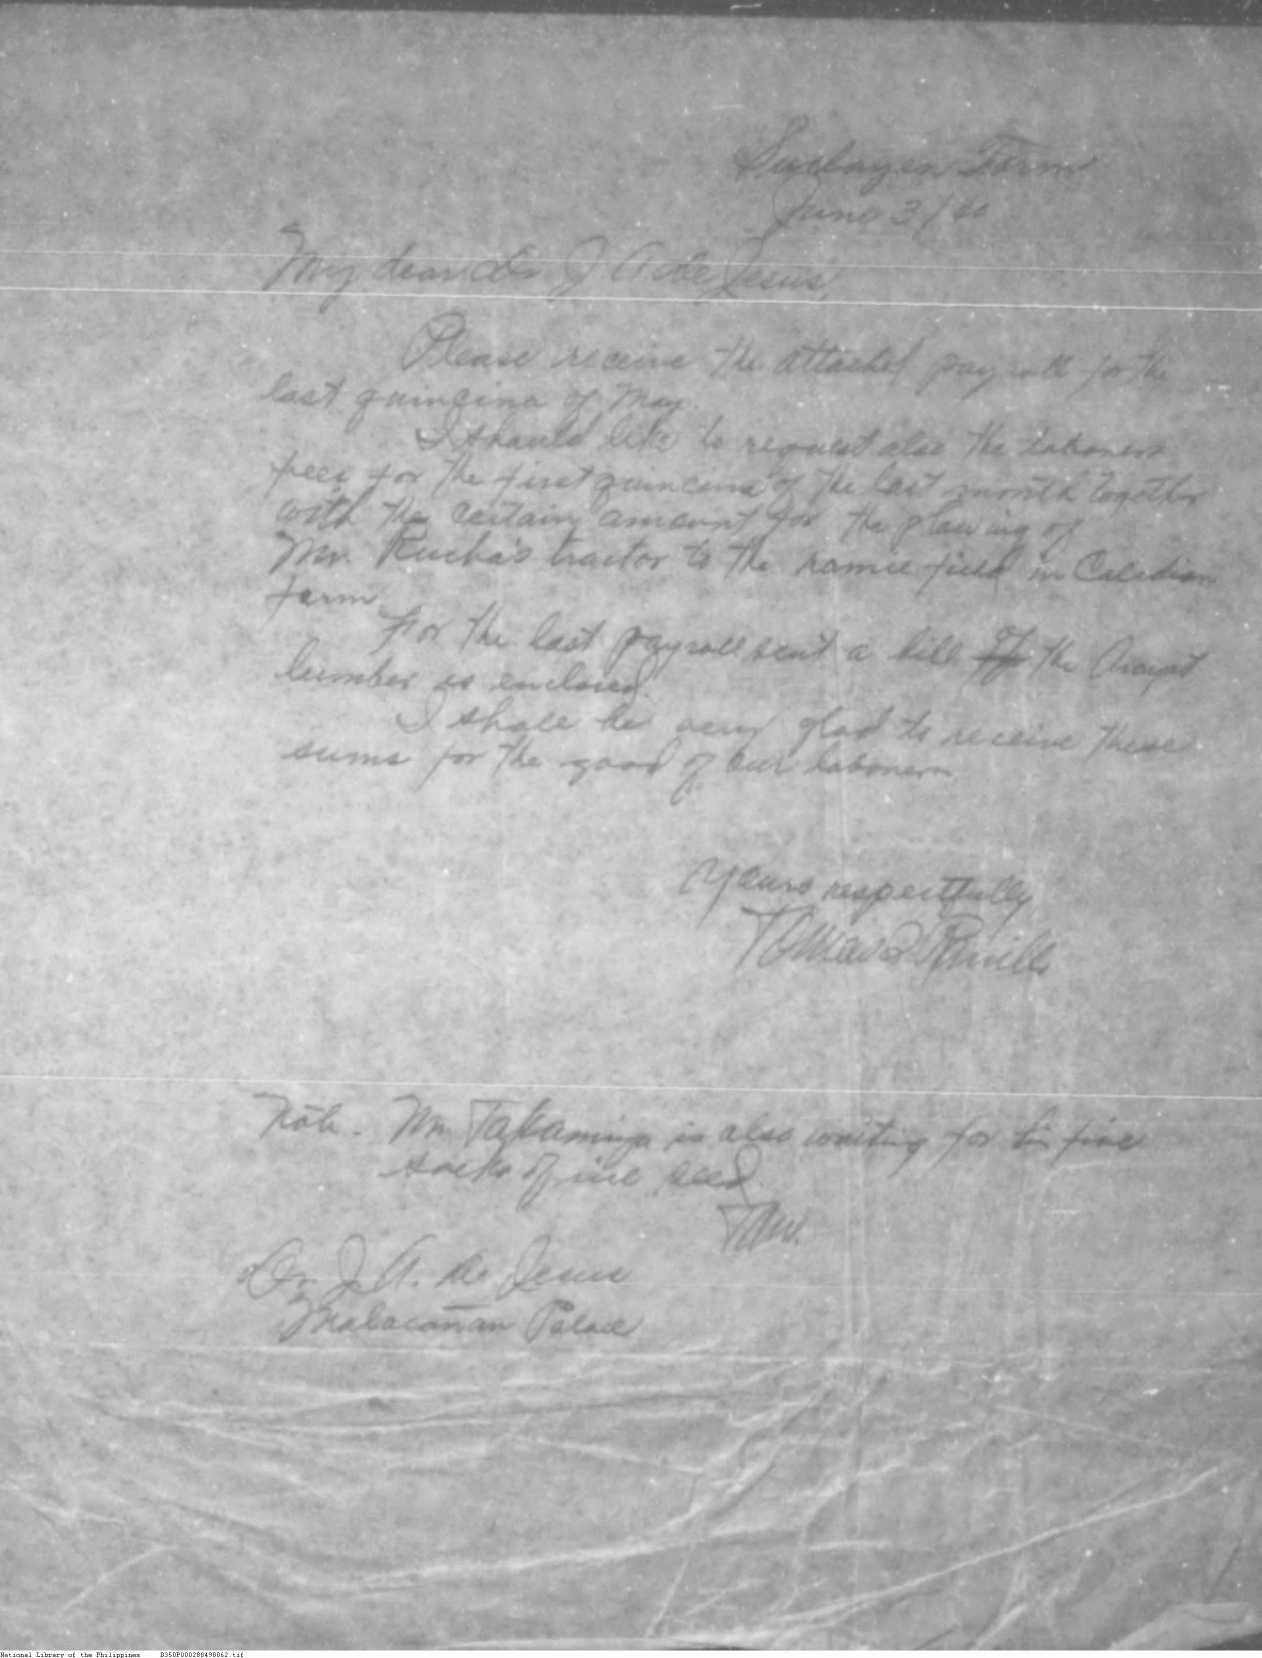 Farm
June 3/40
My dear Dr. J. A. de Jesus,
Please receive the attached payroll for the
last quincina of May.
I should like to request also the laborers
fees for the first quincina of the last month together
with the certain amount for the plowing of
Mr. tractor to the ramie field in
farm.
For the last payroll sent a bill of the
lumber is enclosed.
I shall be very glad to receive these
sums for the good of our laborers
Yours respectfully
Note. Mr. Takamiya is also waiting for five
sacks of seed
Dr. J. A. de Jesus
Malacañan Palace
National Library of the Philippines D350P000288490062.tif